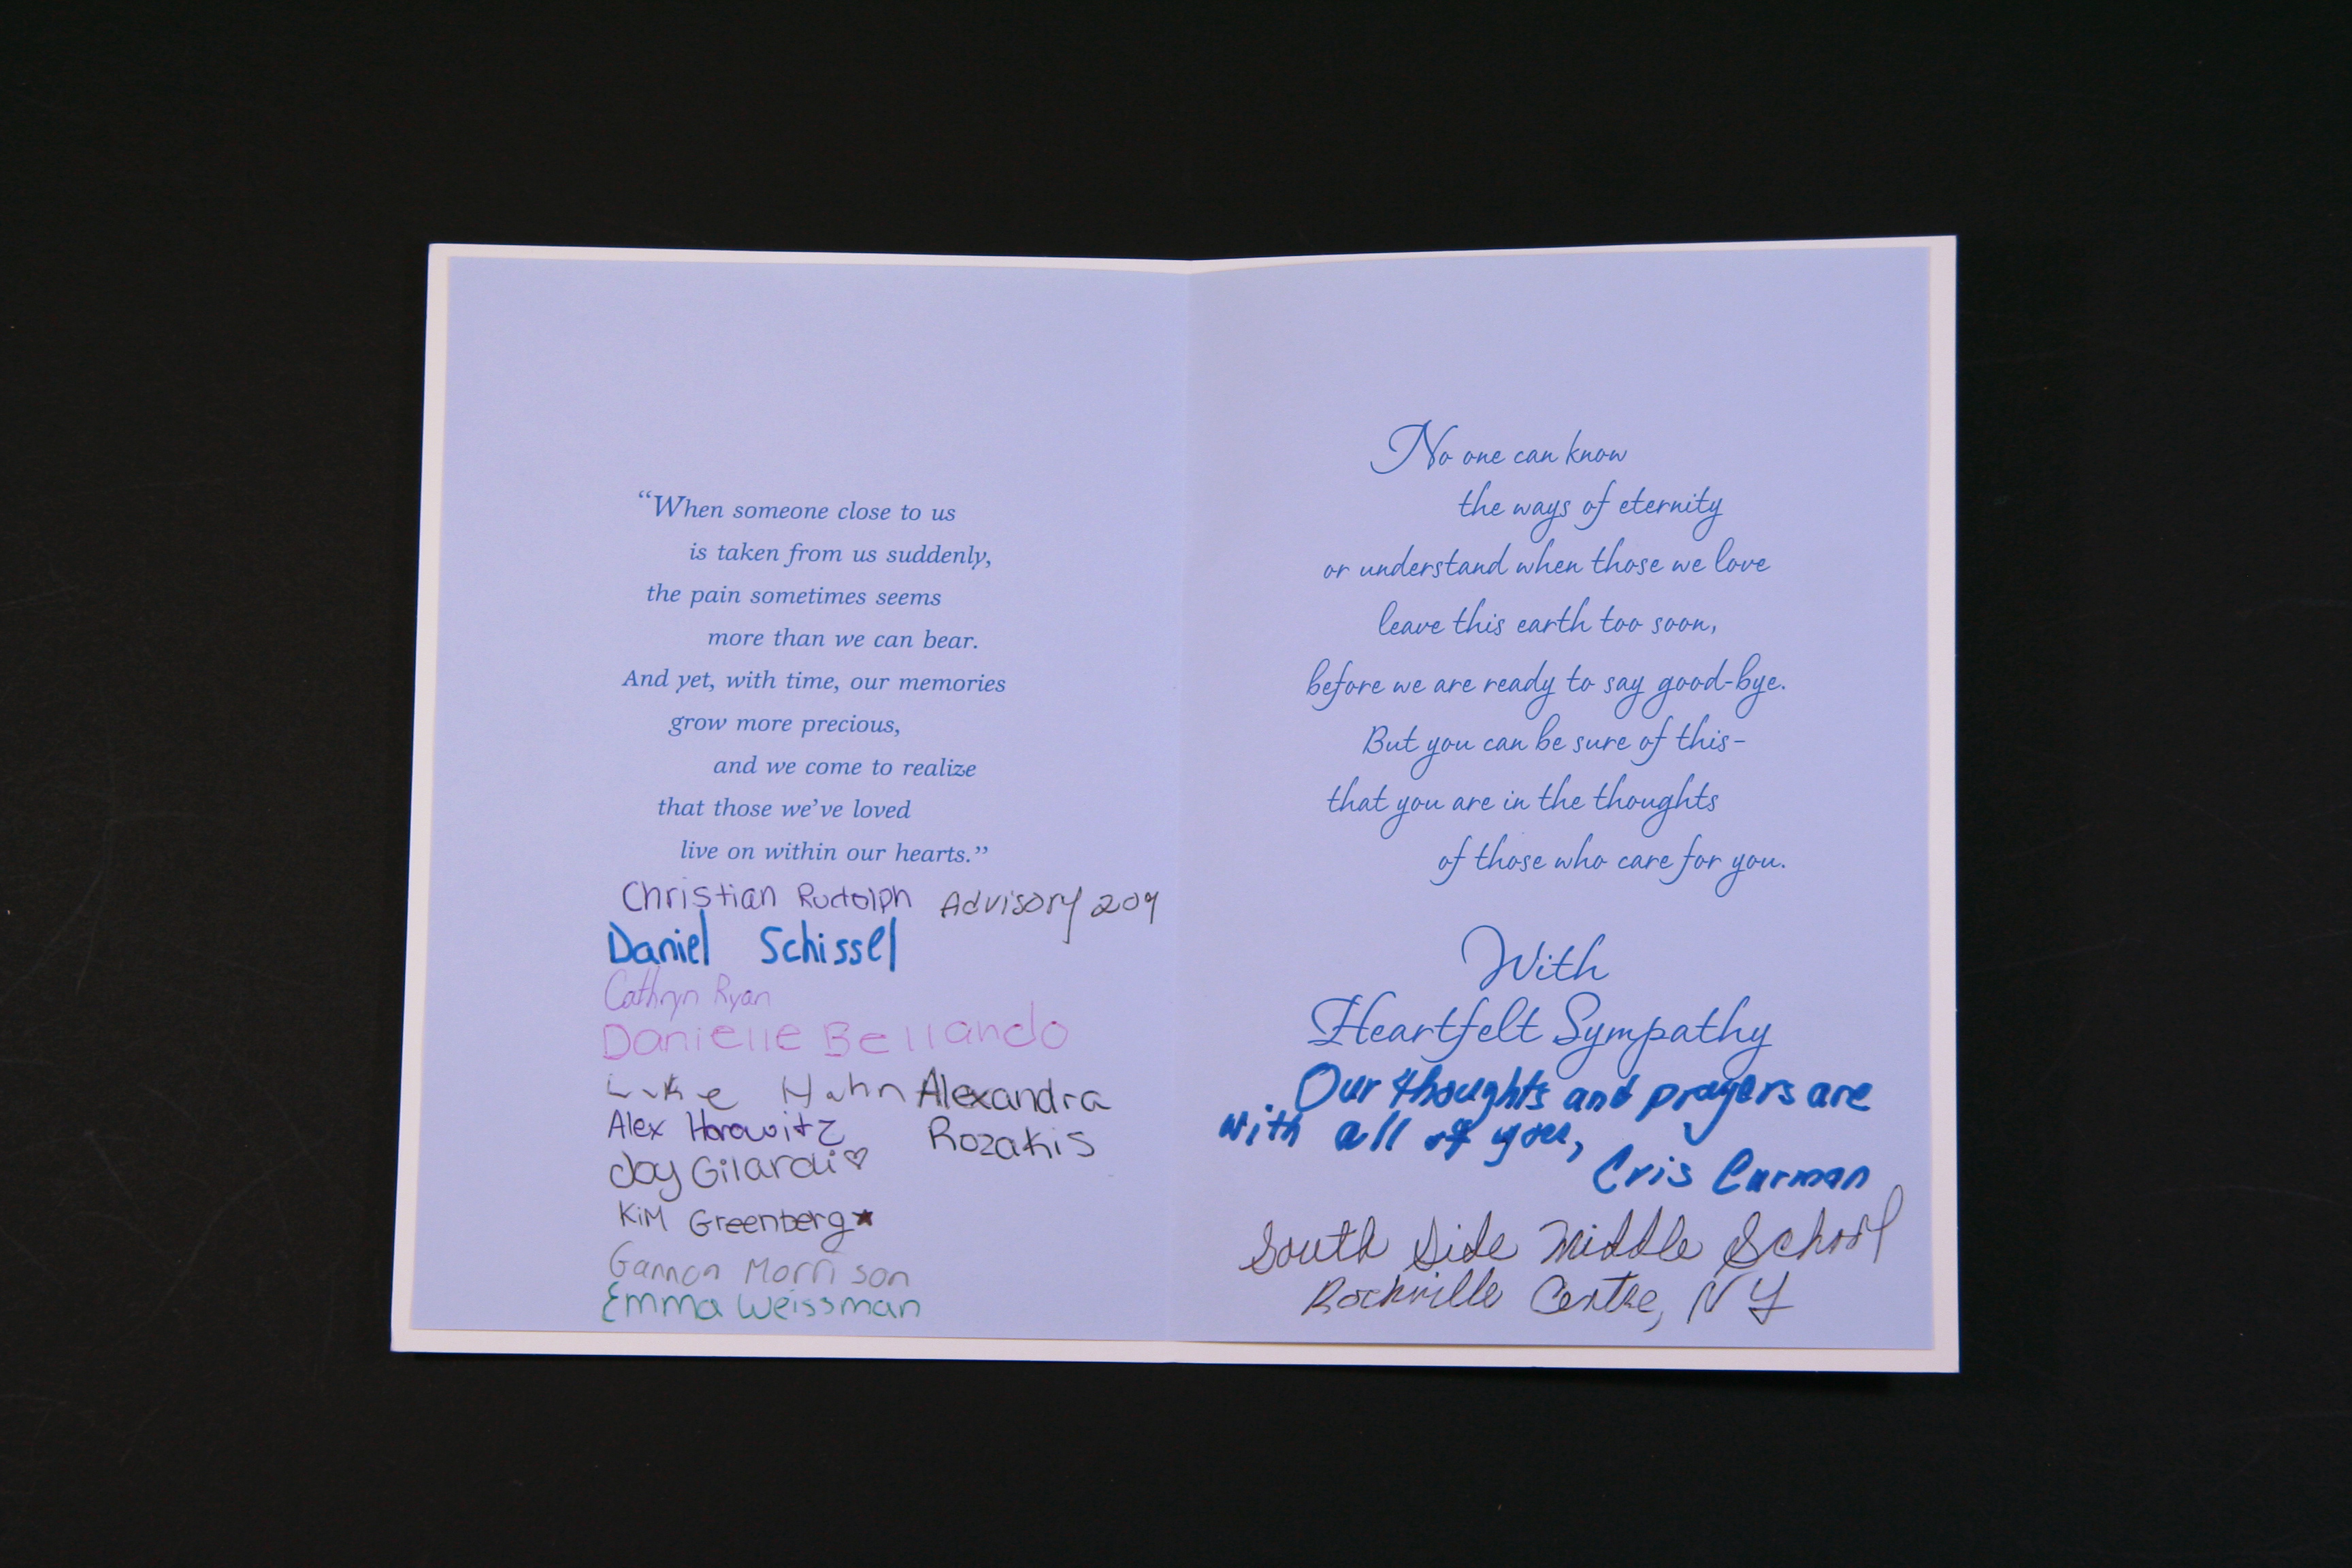 “When someone close to us
is taken from us suddenly,
the pain sometimes seems
more than we can bear.
And yet, with time, our memories
grow more precious,
and we come to realize
that those we’ve loved
live on within our hearts.”
Christian Rudolph Advisory 209
Daniel Schissel
Cathryn Ryan
Danielle Bellando
Luke Hahn Alexandra
Alex Horowitz Rozakis
Joy Gilardi♡
Kim Greenberg★
Gannon Morrison
Emma Weissman
No one can know
the ways of eternity
or understand when those we love
leave this earth too soon,
before we are ready to say good-bye.
But you can be sure of this-
that you are in the thoughts
of those who care for you.
With
Heartfelt Sympathy
Our thoughts and prayers are
with all of you,
Cris Curman
South Side Middle School
Rockville Centre, NY